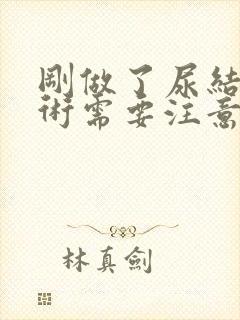 剛做了尿結
術需要注意
林真劍